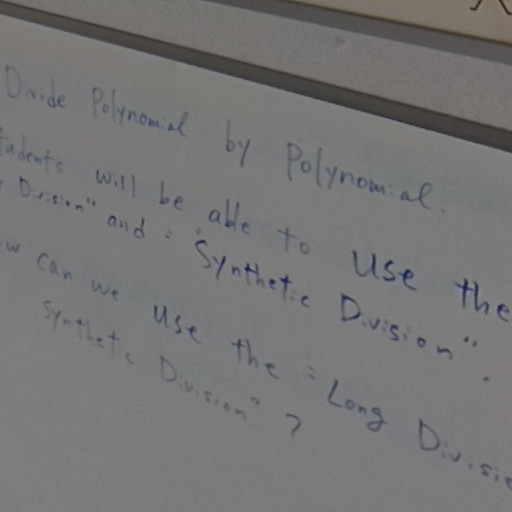 Divide Polynomial by Polynomial.
tudents will be able to use the
Division" and "Synthetic Division".
w can we use the "Long Divisi
Synthetic Division" ?